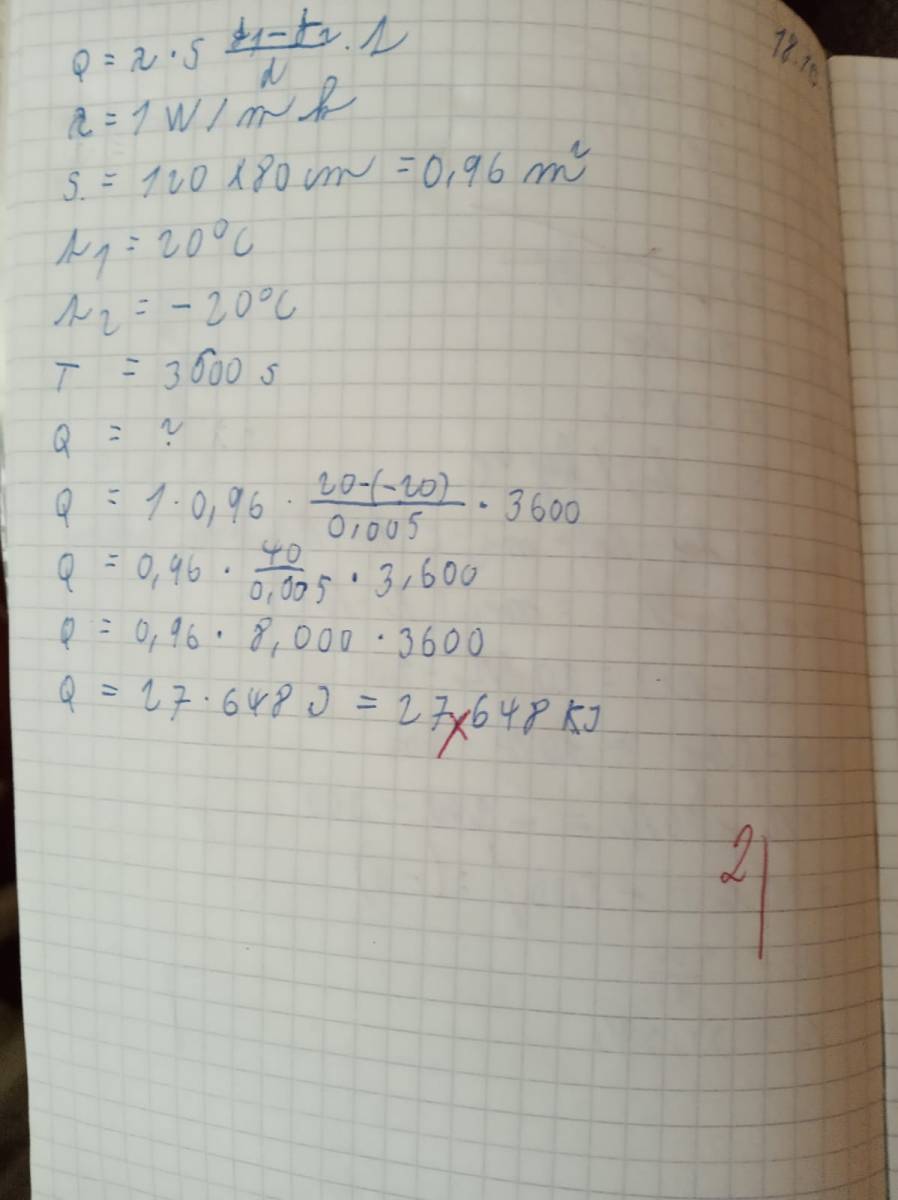 18.10
Q = λ · S t1-t2/d · T
λ = 1 W / m k
S. = 120 x 80 cm = 0,96 m²
t1 = 20°C
t2 = - 20°C
T = 3600 s
Q = ?
Q = 1 · 0,96 · 20-(-20)/0,005 · 3600
Q = 0,96 · 40/0,005 · 3,600
Q = 0,96 · 8,000 · 3600
Q = 27.648 J = 27 648 KJ
2